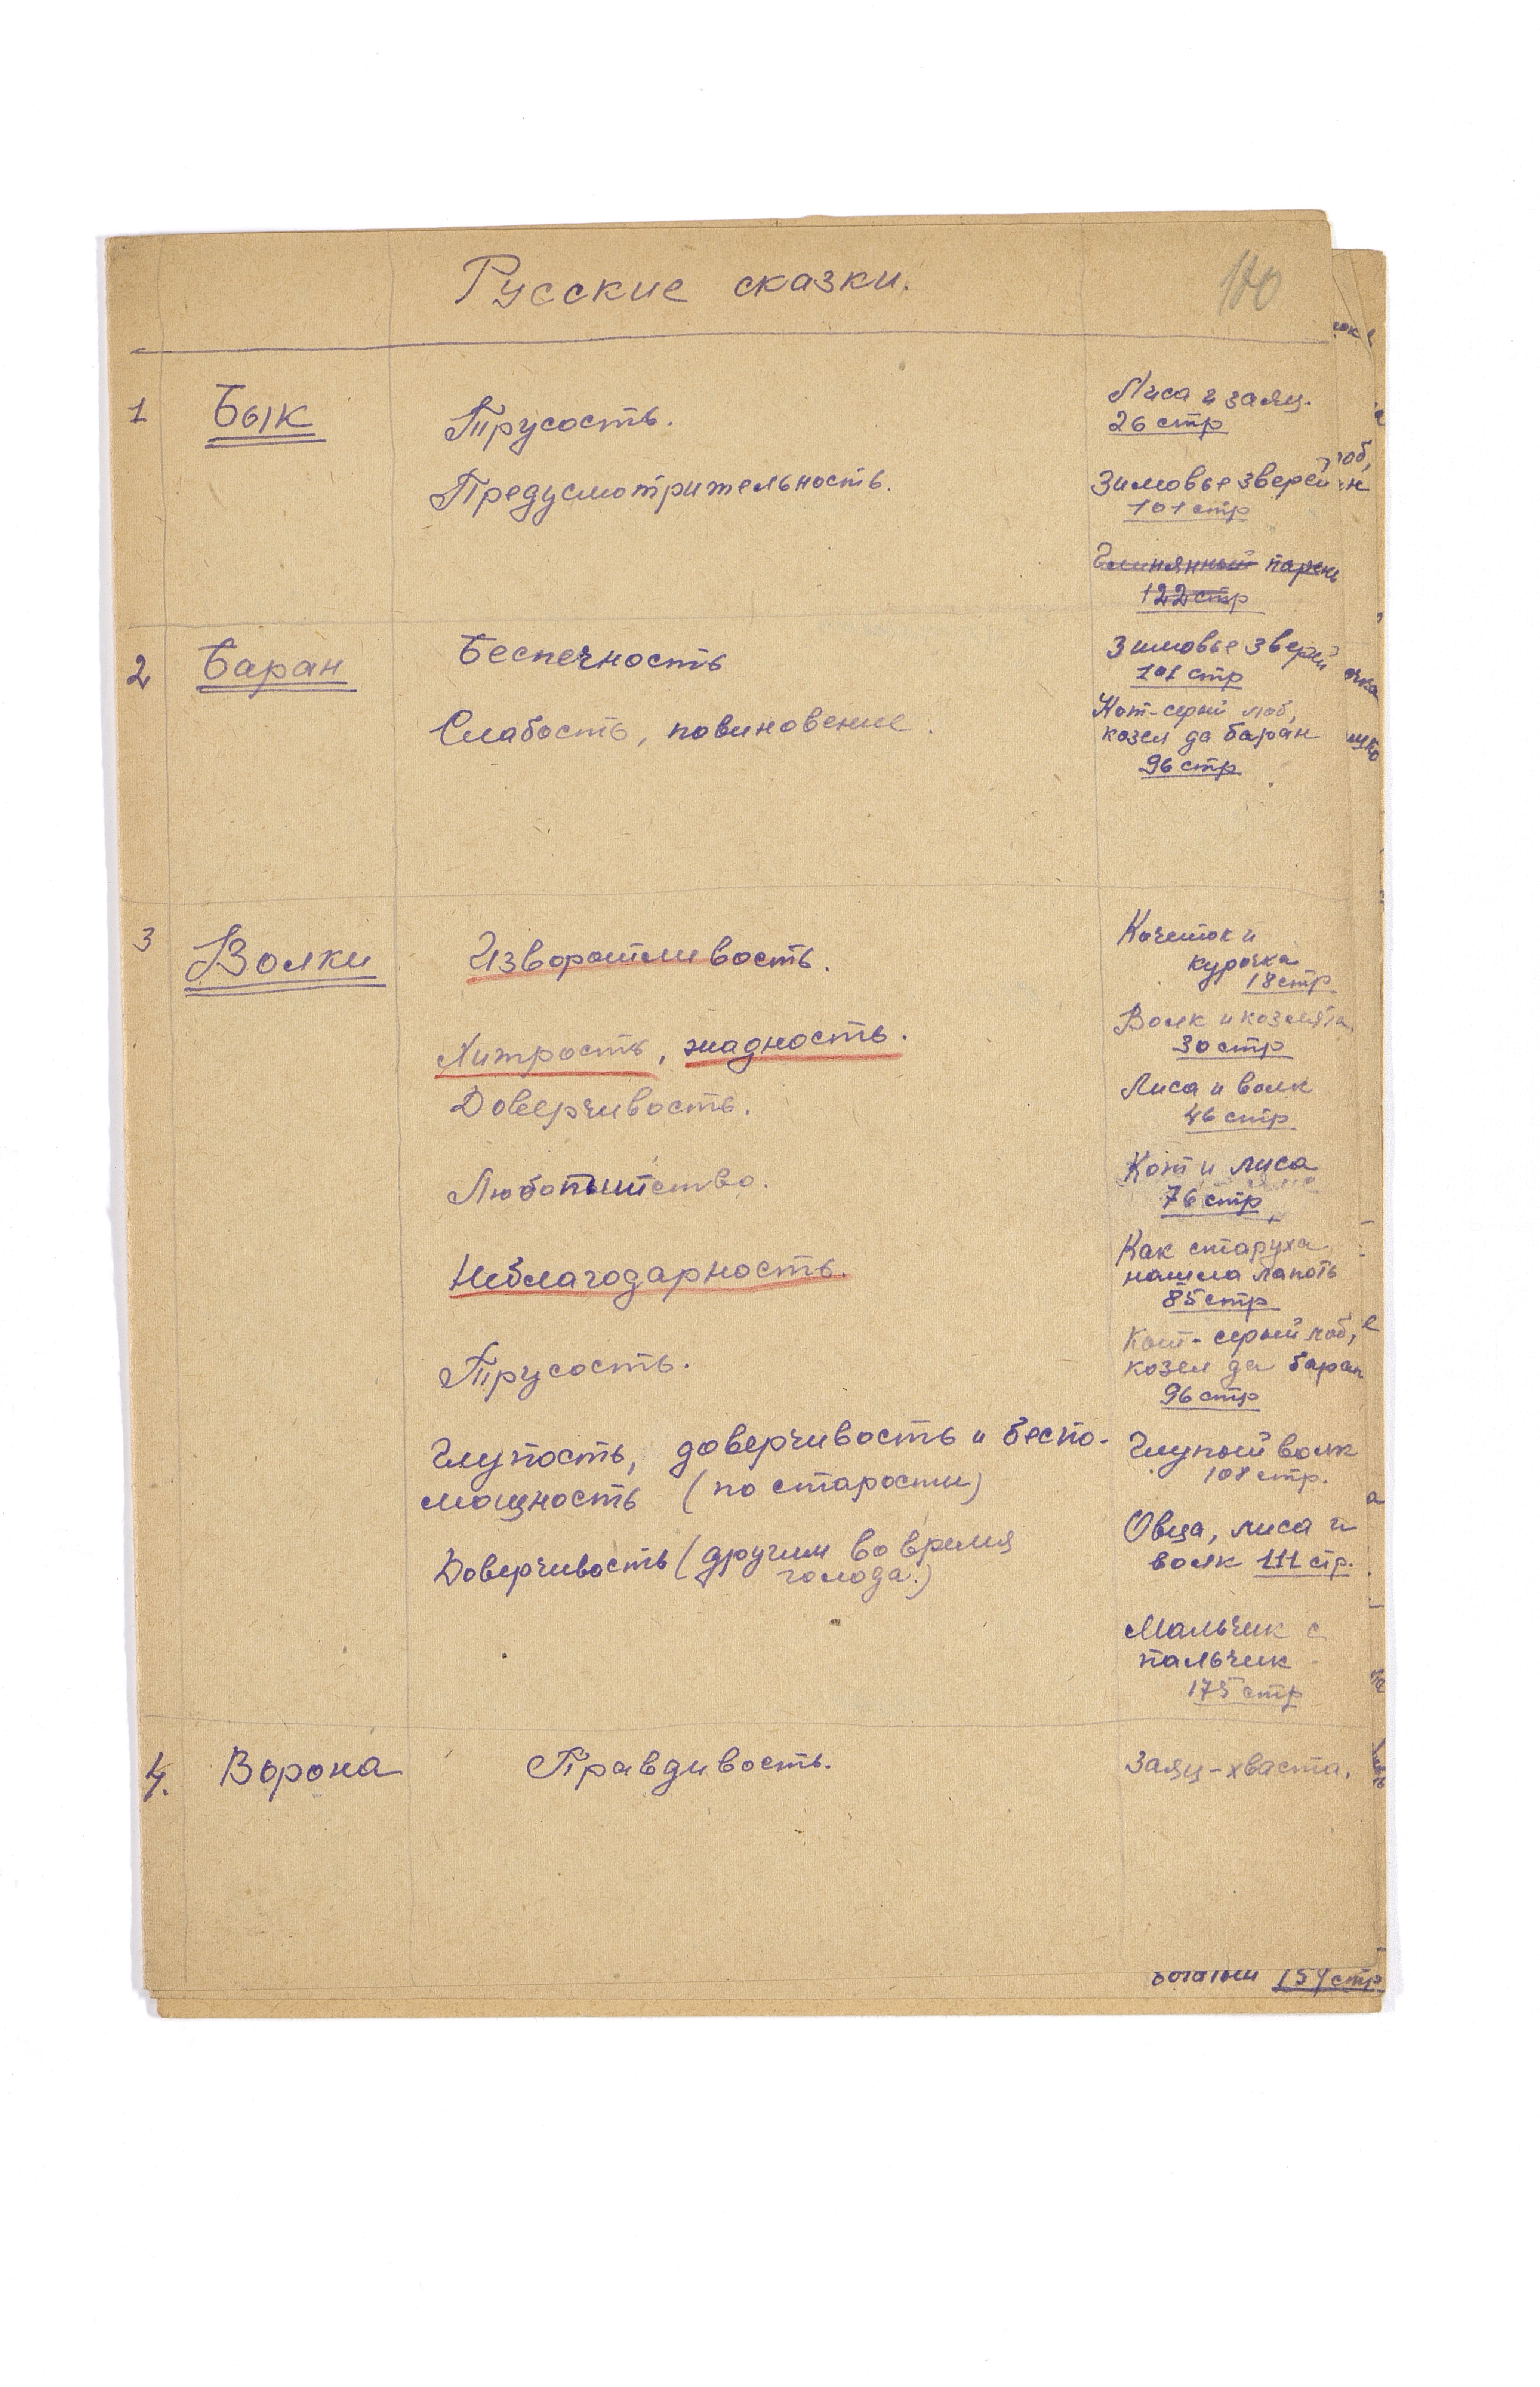 Русские сказки.
1 Бык
Трусость.
Лиса и заяц.
26 стр
Предусмотрительность.
Зимовье зверей
101 стр
Глиняный парень
122 стр
2 Баран
Беспечность
Зимовье зверей
101 стр
Слабость, повиновение.
Кот-серый лоб,
козел да баран
96 стр
3 Волки
Изворотливость.
Кочеток и
курочка
18 стр
Хитрость, жадность.
Волк и козлята.
30 стр
Доверчивость.
Лиса и волк
46 стр
Любопытство.
Кот и лиса
76 стр
Неблагодарность.
Как старуха
нашла лапоть
85 стр
Трусость.
Кот-серый лоб,
козел да баран
96 стр
Глупость, доверчивость и беспо-
мощность (по старости)
Глупый волк
108 стр.
Доверчивость (другим во время
голода.)
Овца, лиса и
волк 111 стр.
Мальчик с
пальчик
175 стр
4. Ворона
Правдивость.
Заяц-хваста.
159 стр